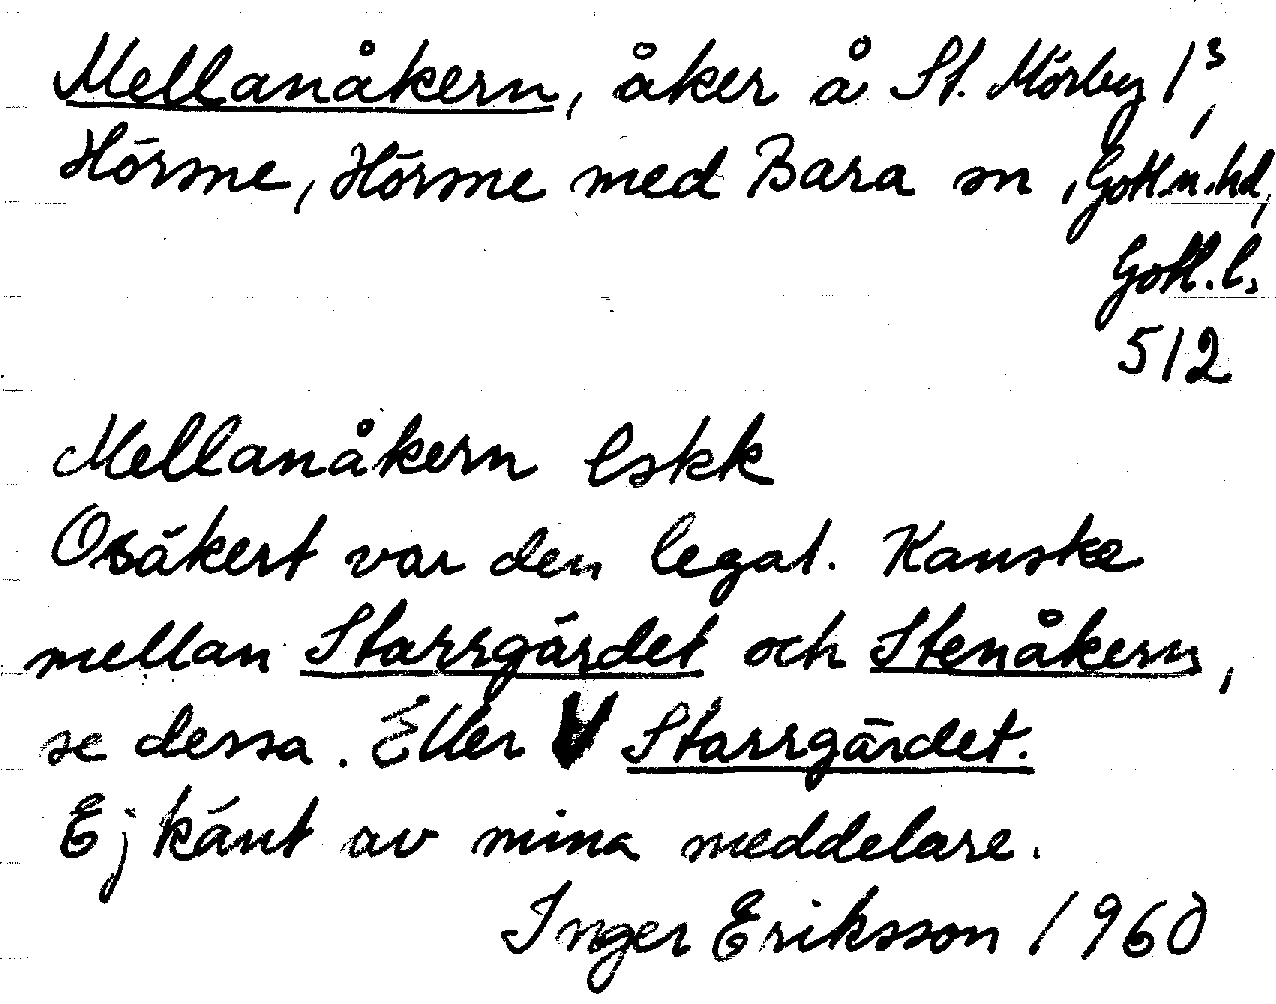 Mellanåkern, åker å St. Mörby 1³,
Hörsne, Hörsne med Bara sn, Gotl.n.hd,
Gotl.l.
512
Mellanåkern lskk
Osäkert var den legat. Kanske
mellan Starrgärdet och Stenåkern,
se dessa. Eller V Starrgärdet.
Ej känt av mina meddelare.
Inger Eriksson 1960